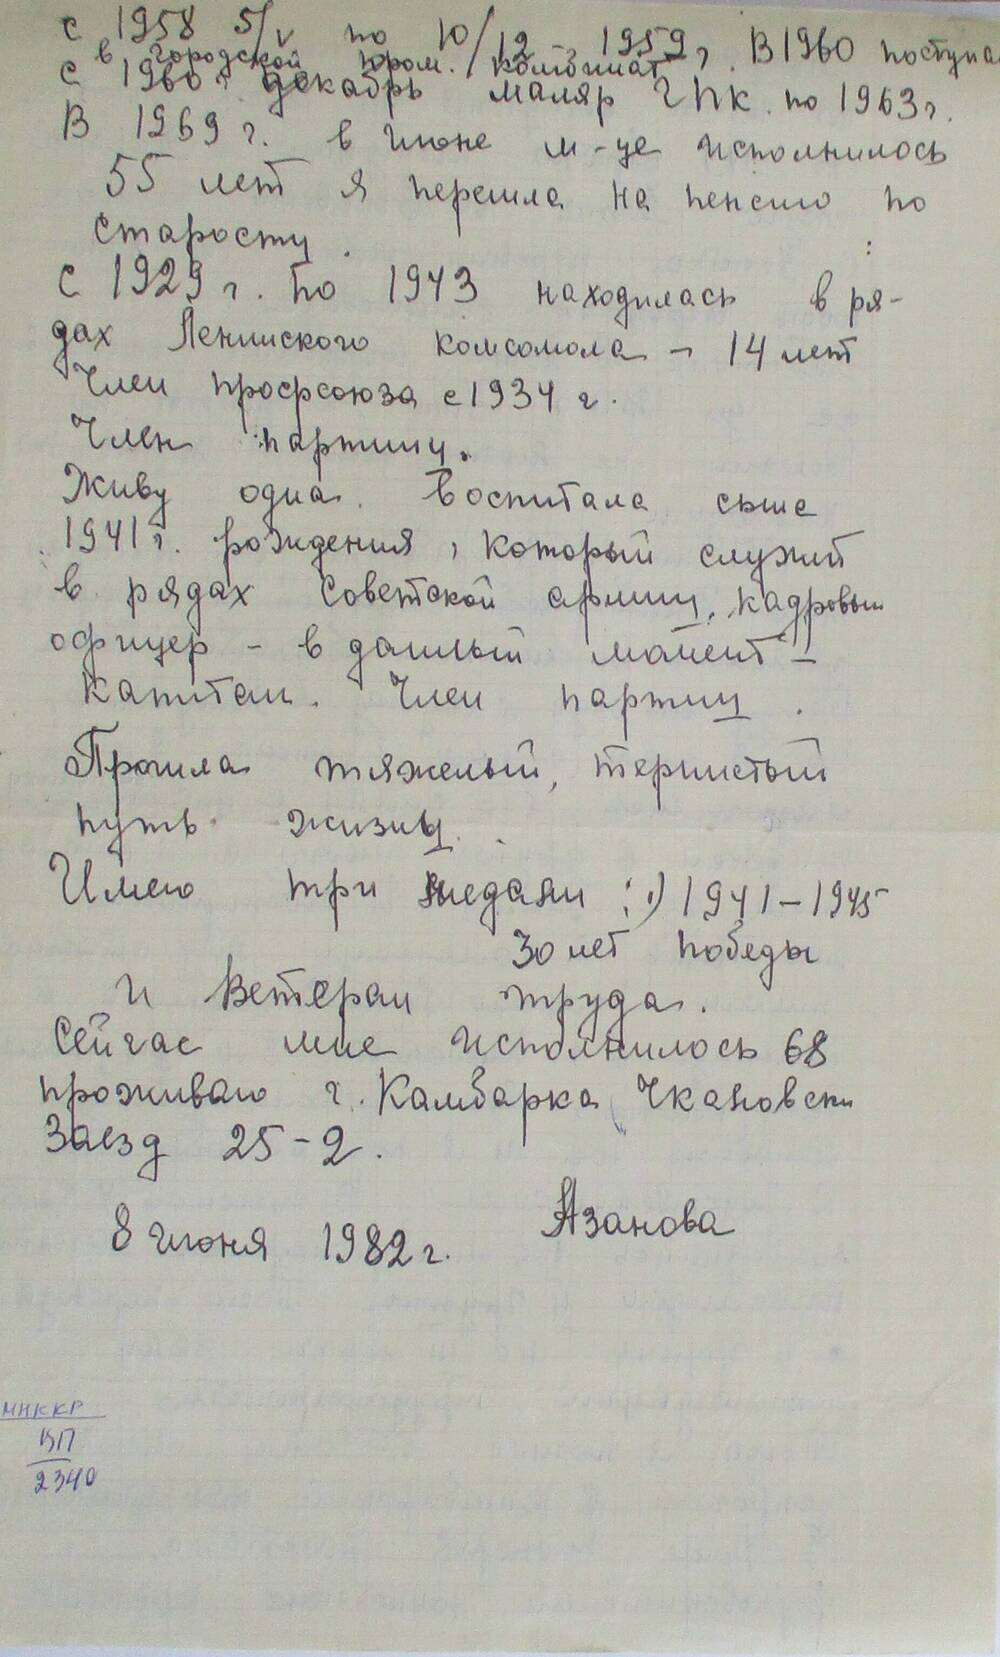 с 1958 5/V по 10/12 1959 г. В 1960 поступа
в городской пром. комбинат
с 1960 г. декабрь маляр ГПК по 1963 г.
В 1969 г. в июне м-це исполнилось
55 лет я перешла на пенсию по
старосту.
с 1929 г. по 1943 находилась в ря-
дах Ленинского комсомола - 14 лет
Член профсоюза с 1934 г.
Член партии.
Живу одна. Воспитала сына
1941 г. рождения, который служит
в рядах Советской армии, кадровый
офицер - в данный момент -
капитан. Член партии.
Прошла тяжелый, тернистый
путь жизни.
Имею три медали: 1) 1941-1945
30 лет победы
и Ветеран труда.
Сейчас мне исполнилось 68
проживаю г. Камбарка Чкаловски
Заезд 25-2.
8 июня 1982 г. Азанова
МИККР
ВП
2340